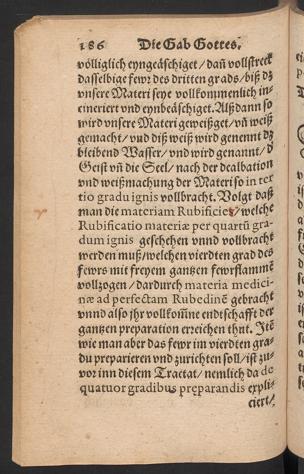 186 Die Gab Gottes.
völliglich eyngeäschiget / dañ vollstreck
dasselbige fewr des dritten grads / biß dz
vnsere Materi seye vollkommenlich in-
cineriert vnd eynbeäschiget. Alßdann so
wird vnsere Materi geweißget / vñ weiß
gemacht / vnd diß weiß wird genennt dz
bleibend Wasser / vnd wird genannt / d̕
Geist vñ die Seel / nach der dealbation
vnd weißmachung der Materi so in ter
tio gradu ignis vollbracht. Volgt daß
man die materiam Rubificier / welche
Rubificatio materiæ per quartũ gra-
dum ignis geschehen vnnd vollbracht
werden muß / welchen vierdten grad des
fewrs mit freyem gantzen fewrflammẽ
vollzogen / dardurch materia medici-
næ ad perfectam Rubedinẽ gebracht
vnnd also jhr vollkom̃ne endtschafft der
gantzen preparation erreichen thut. Itẽ
wie man aber das fewr im vierdten gra-
du preparieren vnd zurichten soll / ist zu-
vor inn diesem Tractat / nemlich da de
quatuor gradibus pręparandis expli-
ciert /